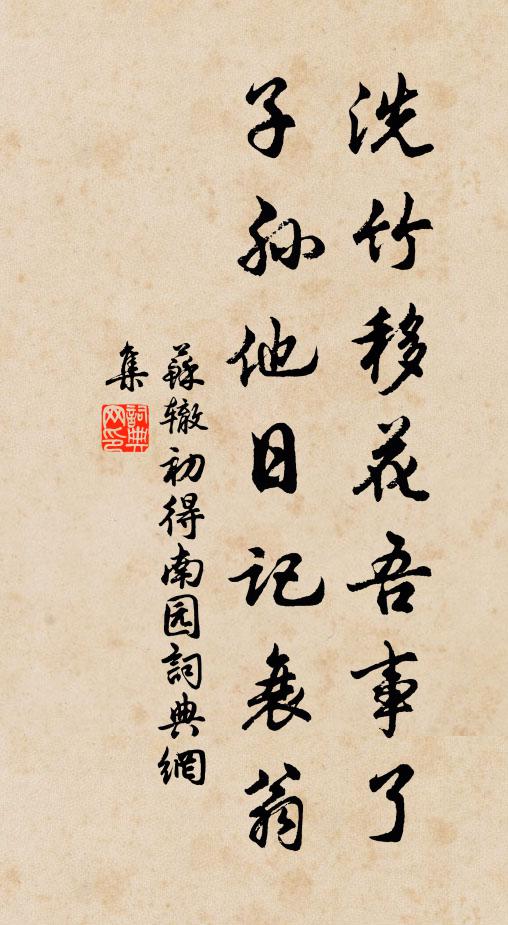 洗竹移花吾事了
子孙他日记衰翁
蘇辙初得南园詞典網
集
詞典网印